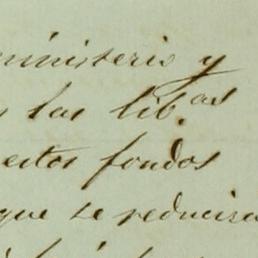 ministerio y
las lib.as
estos fondos
que se reducira